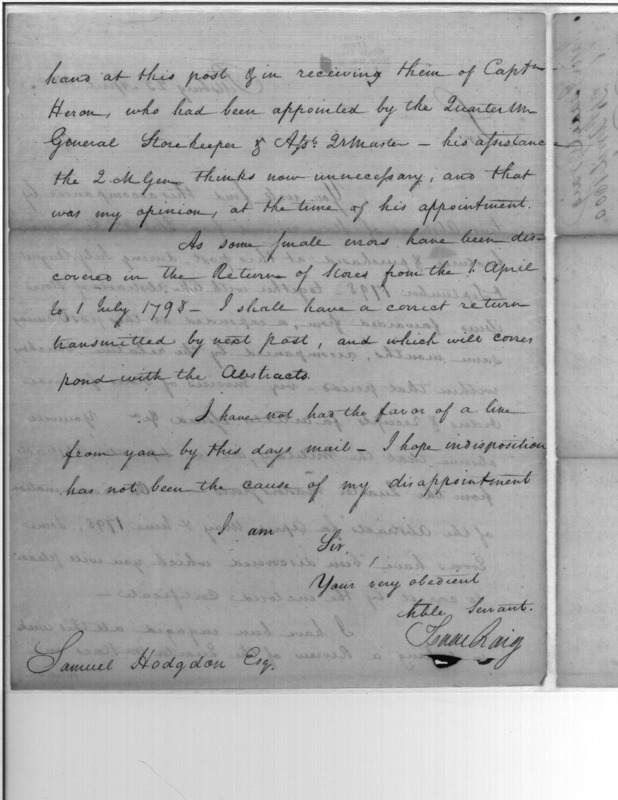 hand at this post & in receiving them of Captn
Heron, who had been appointed by the Quarter Mr
General Storekeeper & Asst QrMaster – his assistance
the Q.M Gen thinks now unnecessary, and that
was my opinion, at the time of his appointment.
As some small errors have been dis-
covered in the Return of Stores from the 1. April
to 1 July 1798 – I shall have a correct return
transmitted by next post, and which will corres
pond with the Abstracts.
I have not had the favor of a line
from you by this days mail – I hope indisposition
has not been the cause of my disappointment
I am
Sir,
Your very obedient
Hble Servant.
Isaac Craig
Samuel Hodgdon Esq.